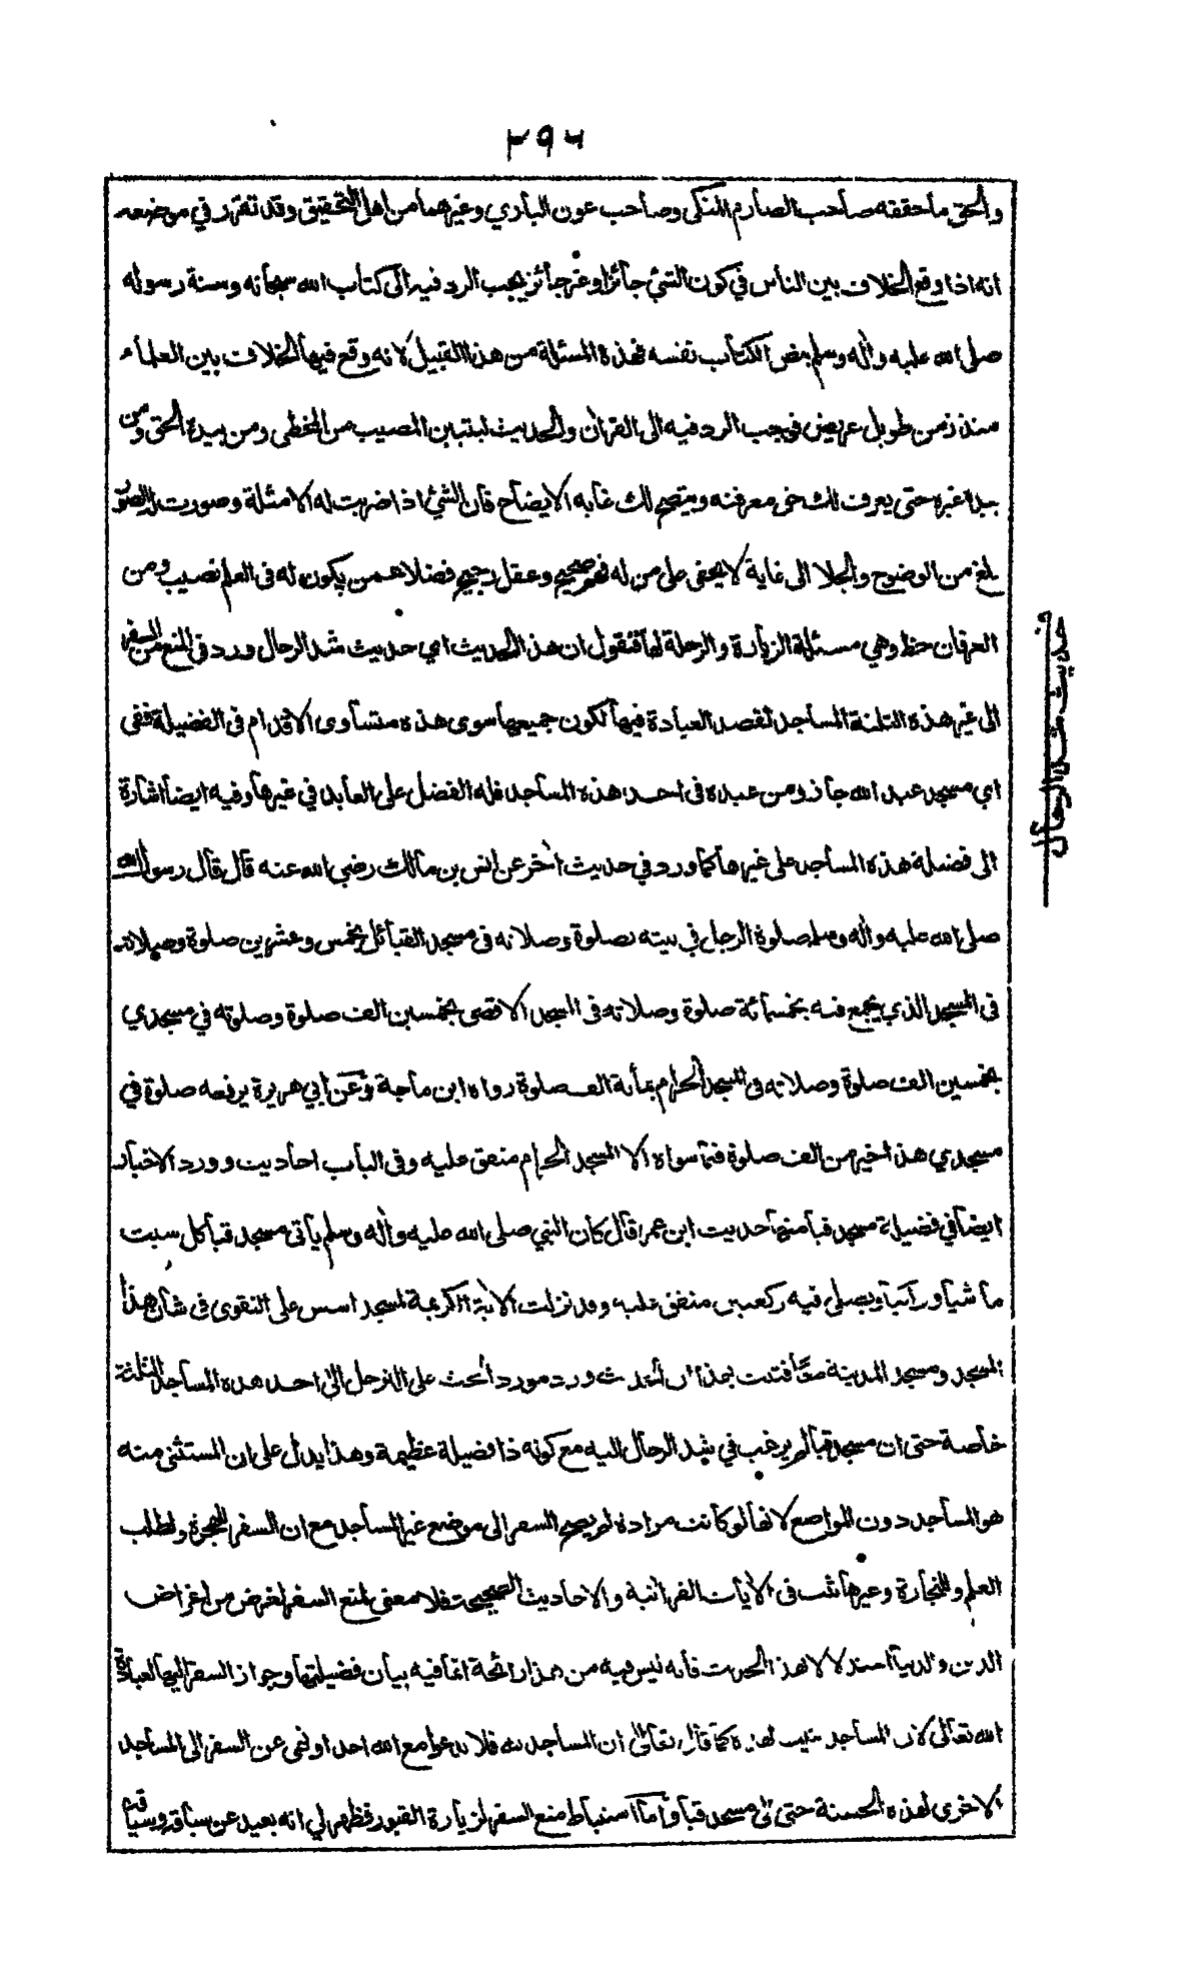 ٢٩٦
والحق ما حققه صاحب الصارم المنكي وصاحب عون الباري وغيرهما من اهل التحقيق وقد تقرر في موضعه
انه اذا وقع الخلاف بين الناس في كون الشئ جائزا وغير جائز يجب الرد فيه الى كتاب الله سبحانه وسنة رسوله
صلى الله عليه واله وسلم بنص الكتاب نفسه فهذه المسئلة من هذا القبيل لانه وقع فيها الخلاف بين العلماء
منذ زمن طويل عريض فوجب الرد فيه الى القران والحديث ليتبين المصيب من المخطى ومن بيده الحق ومن
بيده غيره حتى يعرف لك حق معرفته ويتضح لك غاية الايضاح فان الشئ اذا ضربت له الامثلة وصورت له الصور
بلغ من الوضوح والجلا الى غاية لا يخفى على من له فهم صحيح وعقل رجيح فضلا عمن يكون له فى العلم نصيب ومن
العرفان حظ وهي مسئلة الزيارة والرحلة لها فنقول ان هذا الحديث اي حديث شد الرحال ورد فى المنع من السفر
الى غير هذه الثلثة المساجد لقصد العبادة فيها لكون جميعها سوى هذه متساوى الاقدام فى الفضيلة ففى
اي مسجد عبد الله جاز ومن عبده فى احد هذه المساجد فله الفضل على العابد في غيرها وفيه ايضا اشارة
الى فضلة هذه المساجد على غيرها كما ورد في حديث اخر عن انس بن مالك رضي الله عنه قال قال رسول الله
صلى الله عليه واله وسلم صلوة الرجل في بيته بصلوة وصلاته فى مسجد القبائل بخمس وعشرين صلوة وصلاته
فى المسجد الذي يجمع فيه بخمسمائة صلوة وصلاته فى المسجد الاقصى بخمسين الف صلوة وصلوته في مسجدي
بخمسين الف صلوة وصلاته فى المسجد الحرام بمأنة الف صلوة رواه ابن ماجة وعن ابي هريرة يرفعه صلوة في
مسجدي هذا خير من الف صلوة فيما سواه الا المسجد الحرام متفق عليه وفى الباب احاديث وورد الاخبار
ايضا في فضيلة مسجد قبا منها حديث ابن عمر قال كان النبي صلى الله عليه واله وسلم يأتى مسجد قبا كل سبت
ماشيا وراكبا ويصلى فيه ركعتين متفق عليه وقد نزلت الاية الكريمة لمسجد اسس على التقوى فى شان هذا
المسجد ومسجد المدينة معا فثبت بهذا ان الحديث ورد مورد الحث على الترحل الى احد هذه المساجد الثلثة
خاصة حتى ان مسجد قبا لم يرغب في شد الرحال اليه مع كونه ذا فضيلة عظيمة وهذا يدل على ان المستثنى منه
هو المساجد دون المواضع لانها لو كانت مرادة لم يصح السفر الى موضع غير المساجد مع ان السفر للهجرة ولطلب
العلم وللتجارة وغيرها ثبت فى الايات القرانية والاحاديث الصحيحة فلا معنى لمنع السفر لغرض من اغراض
الدين والدنيا استدلالا بهذا الحديث فانه ليس فيه من هذا رائحة انما فيه بيان فضيلتها وجواز السفر اليها لعبادة
الله تعالى لان المساجد بنيت لهذه كما قال تعالى ان المساجد لله فلا تدعوا مع الله احدا ونهى عن السفر الى المساجد
الاخرى لهذه الحسنة حتى الى مسجد قبا واما استنباط منع السفر لزيارة القبور فظهر لي انه بعيد عن سباقه وسياقه
حديث شد الرحال